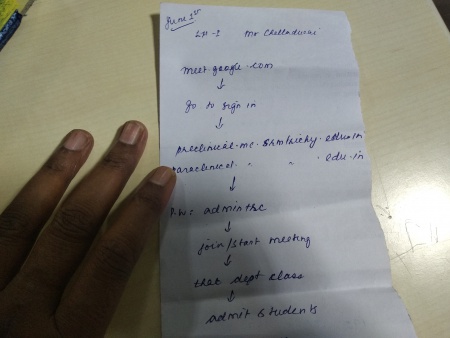 June 1st
LH-I Mr Chelladurai
meet google.com
↓
go to sign in
↓
preclinical.mc.srmtrichy.edu.in
paraclinical. " " .edu.in
↓
P.W:
↓
join/start meeting
↓
that dept class
↓
admit students